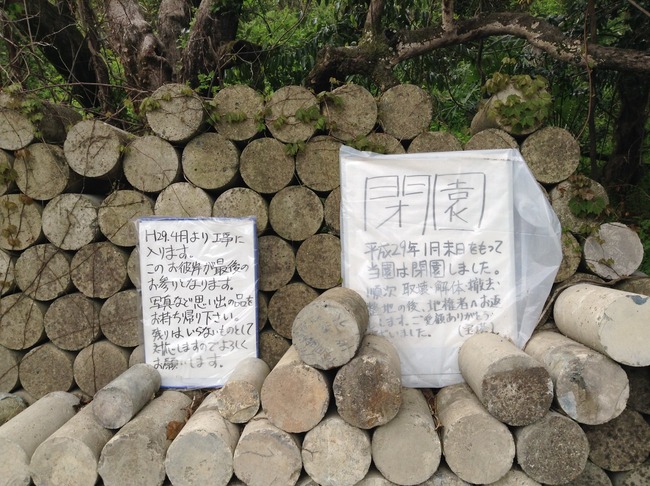 H29.4月より工事に
入ります。
このお彼岸が最後の
お参りになります。
写真など思い出の品を
お持ち帰り下さい。
残りはいらないものとして
対応しますのでよろしく
お願いします。
閉園
平成29年1月末日をもって
当園は閉園しました。
順次 取壊・解体・撤去
地の後、地権者へお返
します。ご愛顧ありがとう
いました。